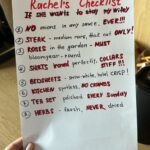 Rachel's Checklist
If she wants to stay my wifey
① NO onions in any sauce, EVER!!!
② STEAK - medium rare, that cut ONLY!
③ ROSES in the garden - MUST
bloom year-round
④ SHIRTS ironed perfectly, COLLARS STIFF!!!
⑤ BEDSHEETS - snow-white, hotel CRISP!
⑥ KITCHEN spotless, NO CRUMBS!!!
⑦ TEA SET polished EVERY Sunday
⑧ HERBS - fresh, NEVER dried